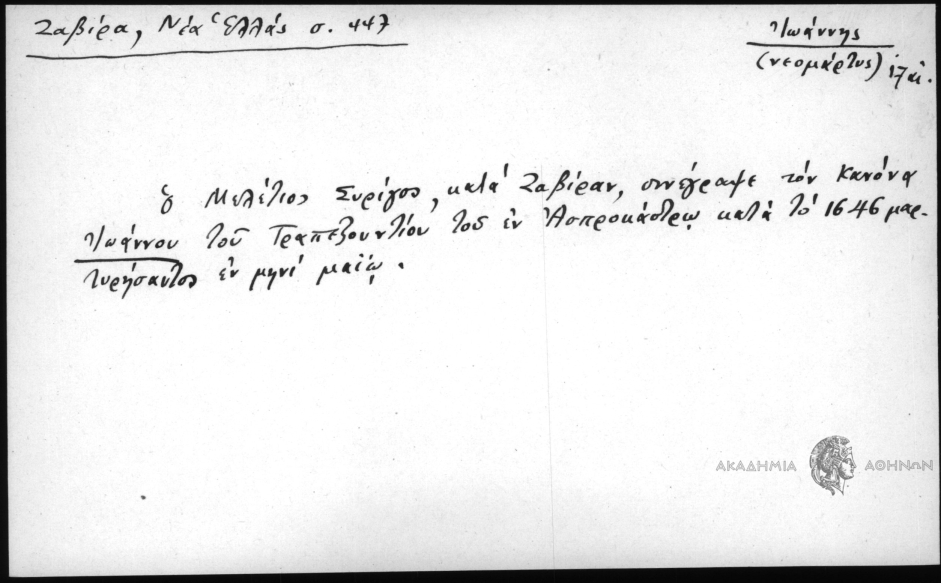 Ζαβίρα, Νέα Ἑλλάς σ. 447
Ἰωάννης
(νεομάρτυς) 17 αἰ.
Ὁ Μελέτιος Συρίγος, κατά Ζαβίραν, συνέγραψε τόν Κανόνα
Ἰωάννου τοῦ Τραπεζουντίου τοῦ ἐν Ἀσπροκάστρῳ κατά τό 1646 μαρ-
τυρήσαντος ἐν μηνί μαΐῳ.
ΑΚΑΔΗΜΙΑ ΑΘΗΝΩΝ